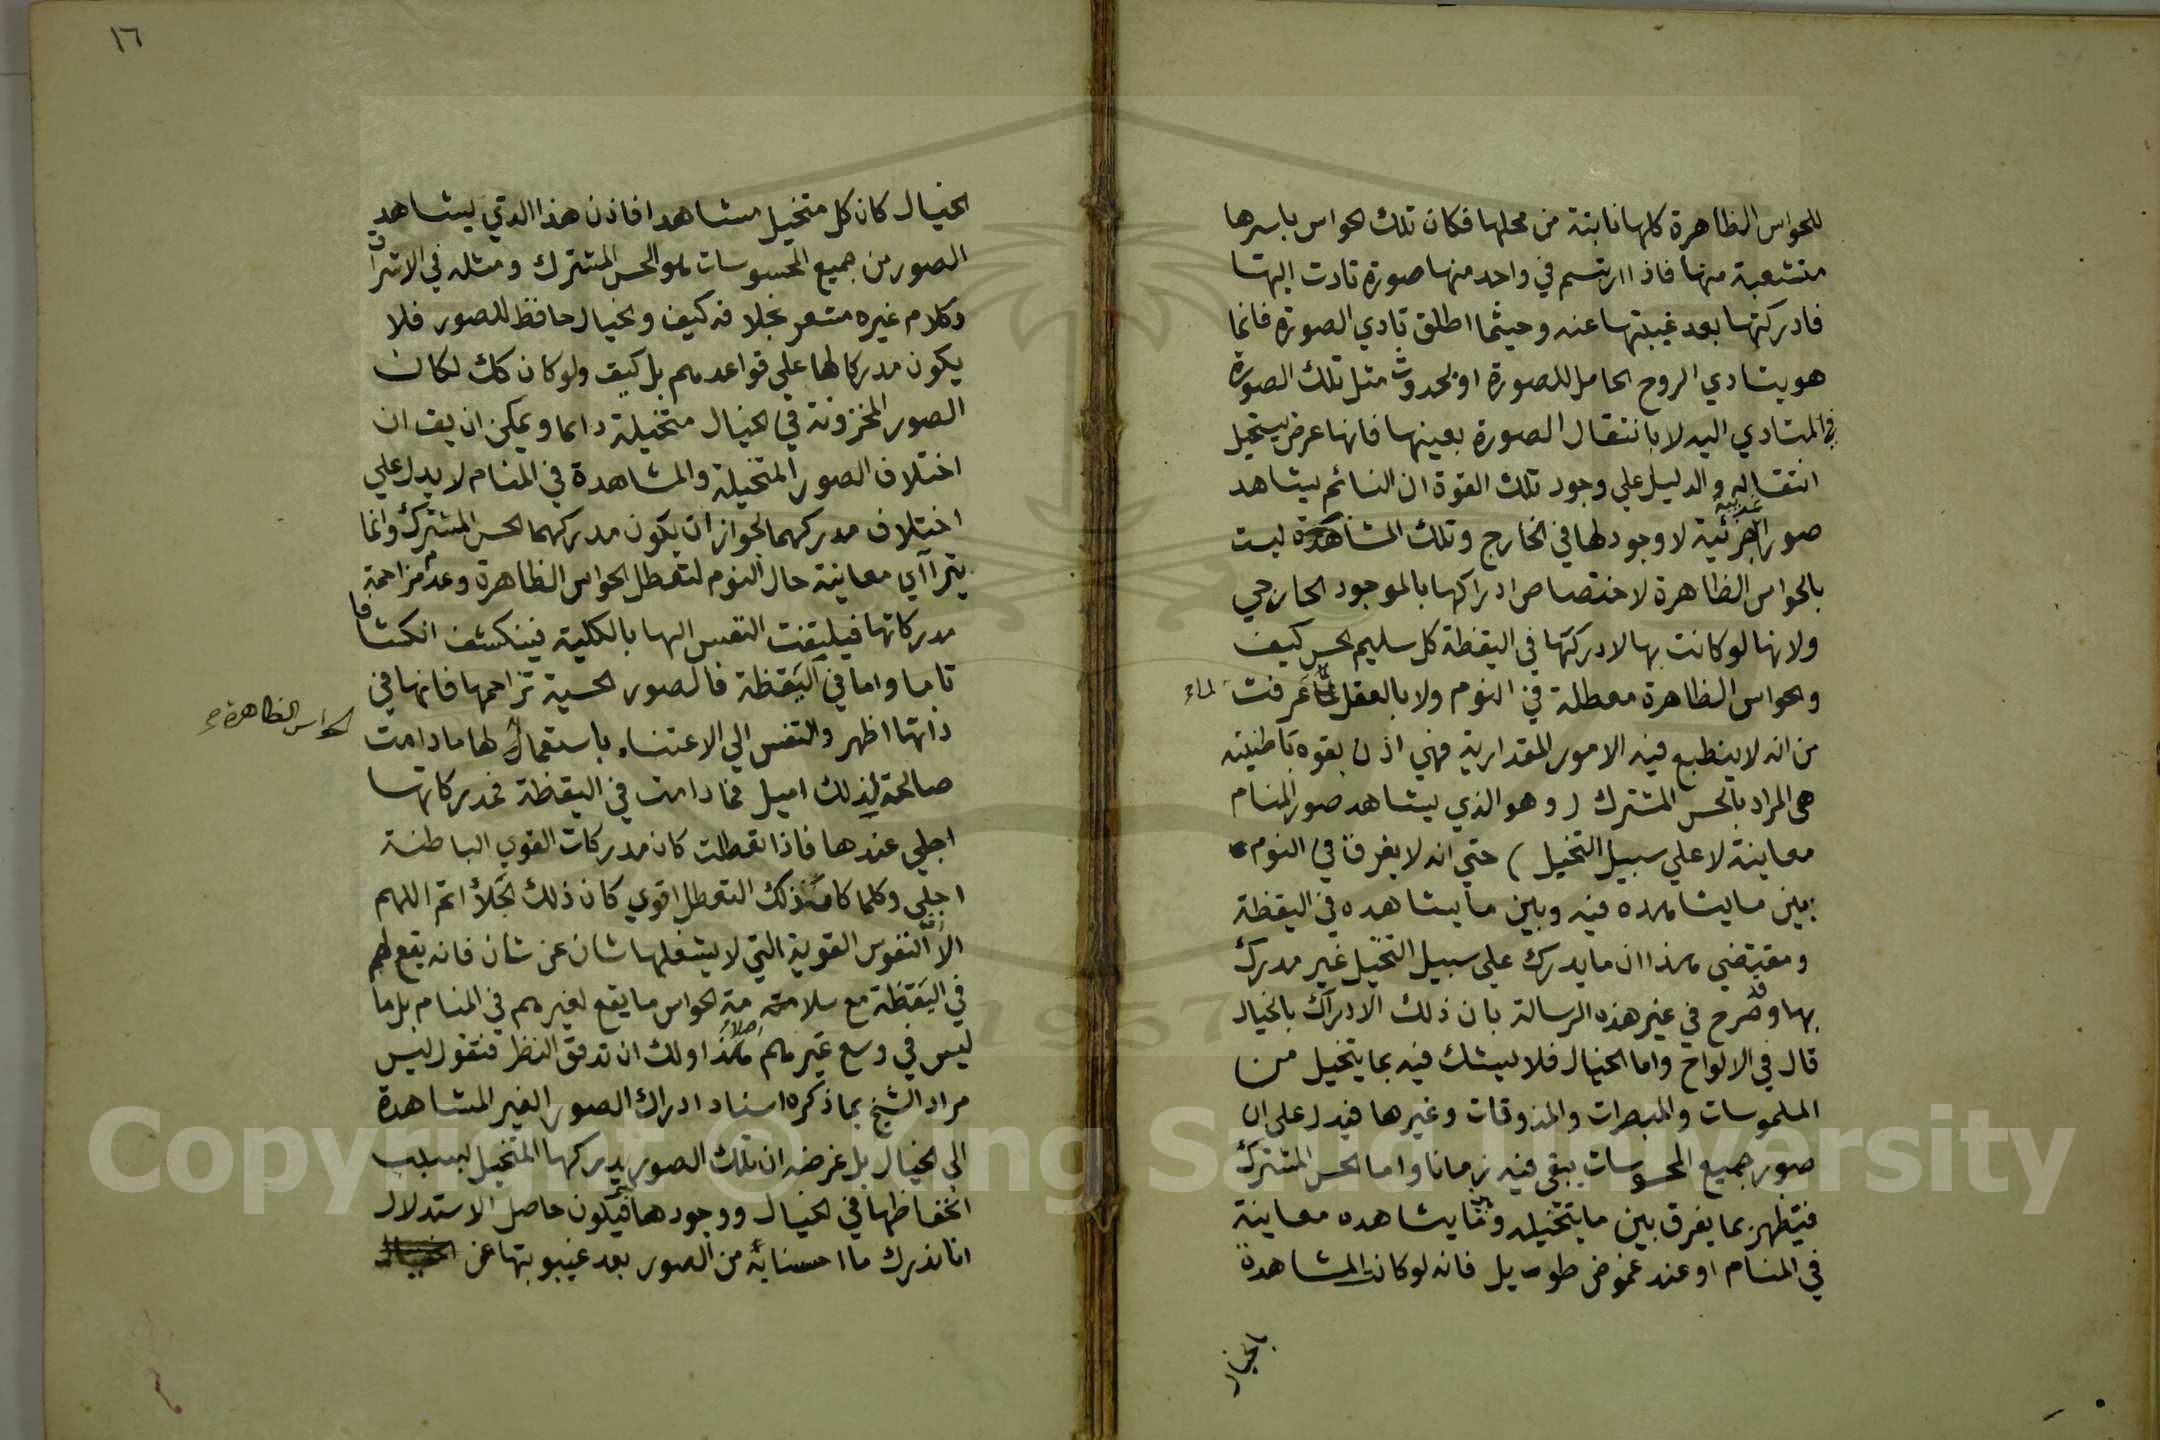 للحواس الظاهرة كلها نابتة من محلها فكان تلك الحواس باسرها
منشعبة منها فاذا ارتسم في واحد منها صورة تادت اليها
فادركتها بعد غيبتها عنه وحيثما اطلق تادي الصورة فانما
هو بتادي الروح الحامل للصورة او بحدوث مثل تلك الصورة
في المتادي اليه لا بانتقال الصورة بعينها فانها عرض يستحيل
انتقاله والدليل علي وجود تلك القوة ان النائم يشاهد
صورا جزئية لا وجود لها في الخارج وتلك المشاهدة ليست
بالحواس الظاهرة لاختصاص ادراكها بالموجود الخارجي
ولانها لو كانت بها لادركتها في اليقظة كل سليم الحس كيف
والحواس الظاهرة معطلة في النوم ولا بالعقل لما عرفت
من انه لا ينطبع فيه الامور المقدارية فهي اذن بقوة باطنية
هي المراد بالحس المشترك ( وهو الذي يشاهد صور المنام
معاينة لا علي سبيل التخيل ) حتي انه لا يفرق في النوم
بين ما يشاهده فيه وبين ما يشاهده في اليقظة
ومقتضي هذا ان ما يدرك علي سبيل التخيل غير مدرك
بها وقد صرح في غير هذه الرسالة بان ذلك الادراك بالخيال
قال في الالواح واما الخيال فلا يشك فيه بما يتخيل من
الملموسات والمبصرات والمذوقات وغيرها فيدل على ان
صور جميع المحسوسات يبقي فيه زمانا واما الحس المشترك
فيظهر بما يفرق بين ما يتخيله وبين ما يشاهده معاينة
في المنام او عند غموض طويل فانه لو كانت المشاهدة
بالخيال
١٦
الخيال كان كل متخيل مشاهدا فاذن هذا الذي يشاهد
الصور من جميع المحسوسات هو الحس المشترك ومثله في الاشراق
وكلام غيره مشعر بخلافه كيف والخيال حافظ للصور فلا
يكون مدركا لها علي قواعدهم بل كيف ولو كان كك لكان
الصور المخزونة في الخيال متخيلة دائما ويمكن ان يق ان
اختلاف الصور المتخيلة والمشاهدة في المنام لا يدل علي
اختلاف مدركهما لجواز ان يكون مدركهما الحس المشترك وانما
يترآاي معاينة حال النوم لتعطل الحواس الظاهرة وعدم مزاحمة
مدركاتها فيلتفت النفس اليها بالكلية فينكشف انكشافا
تاما واما في اليقظة فالصور الحسية تزاحمها فانها في
ذاتها اظهر والنفس الي الاعتناء باستعمال لها ما دامت
الحواس الظاهرة
صالحة لذلك اميل فما دامت في اليقظة فمدركاتها
اجلي عندها فاذا تعطلت كان مدركات القوي الباطنة
اجلي وكلما كان ذلك التعطل اقوي كان ذلك الجلأ اتم اللهم
الا النفوس القوية التي لا يشغلها شان عن شان فانه يقع لهم
في اليقظة مع سلامة الحواس ما يقع لغيرهم في المنام بل ما
ليس في وسع غيرهم هذا ولك ان تدقق النظر فتقول ليس
مراد الشيخ بما ذكره اسناد ادراك الصور الغير المشاهدة
الي الخيال بل غرضه ان تلك الصور يدركها المتخيل بسبب
انحفاظها في الخيال ووجودها فيكون حاصل الاستدلال
انا ندرك ما احسنا به من الصور بعد غيبوبتها عن